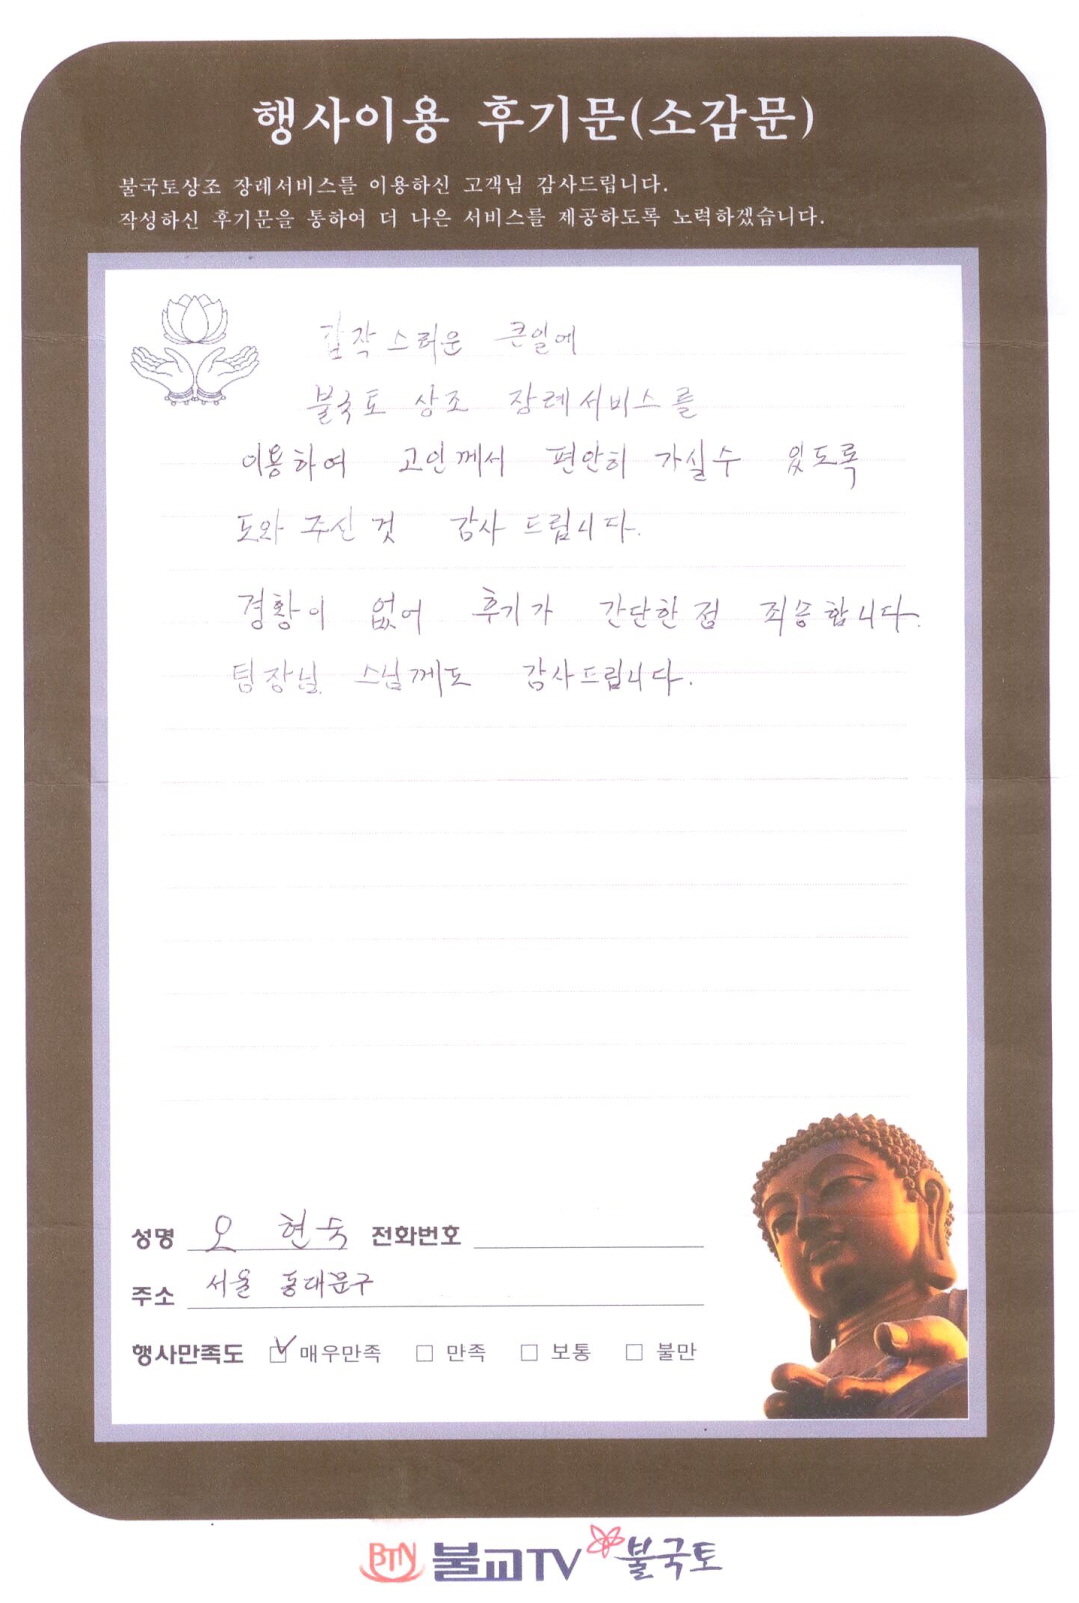 행사이용 후기문(소감문)
불국토상조 장례서비스를 이용하신 고객님 감사드립니다.
작성하신 후기문을 통하여 더 나은 서비스를 제공하도록 노력하겠습니다.
갑작스러운 큰일에
불국토 상조 장례서비스를
이용하여 고인께서 편안히 가실수 있도록
도와 주신 것 감사 드립니다.
경황이 없어 후기가 간단한 점 죄송합니다.
팀장님 스님께도 감사드립니다.
성명 오 현숙 전화번호
주소 서울 동대문구
행사만족도 ☑ 매우만족 □ 만족 □ 보통 □ 불만
BTN 불교TV 불국토